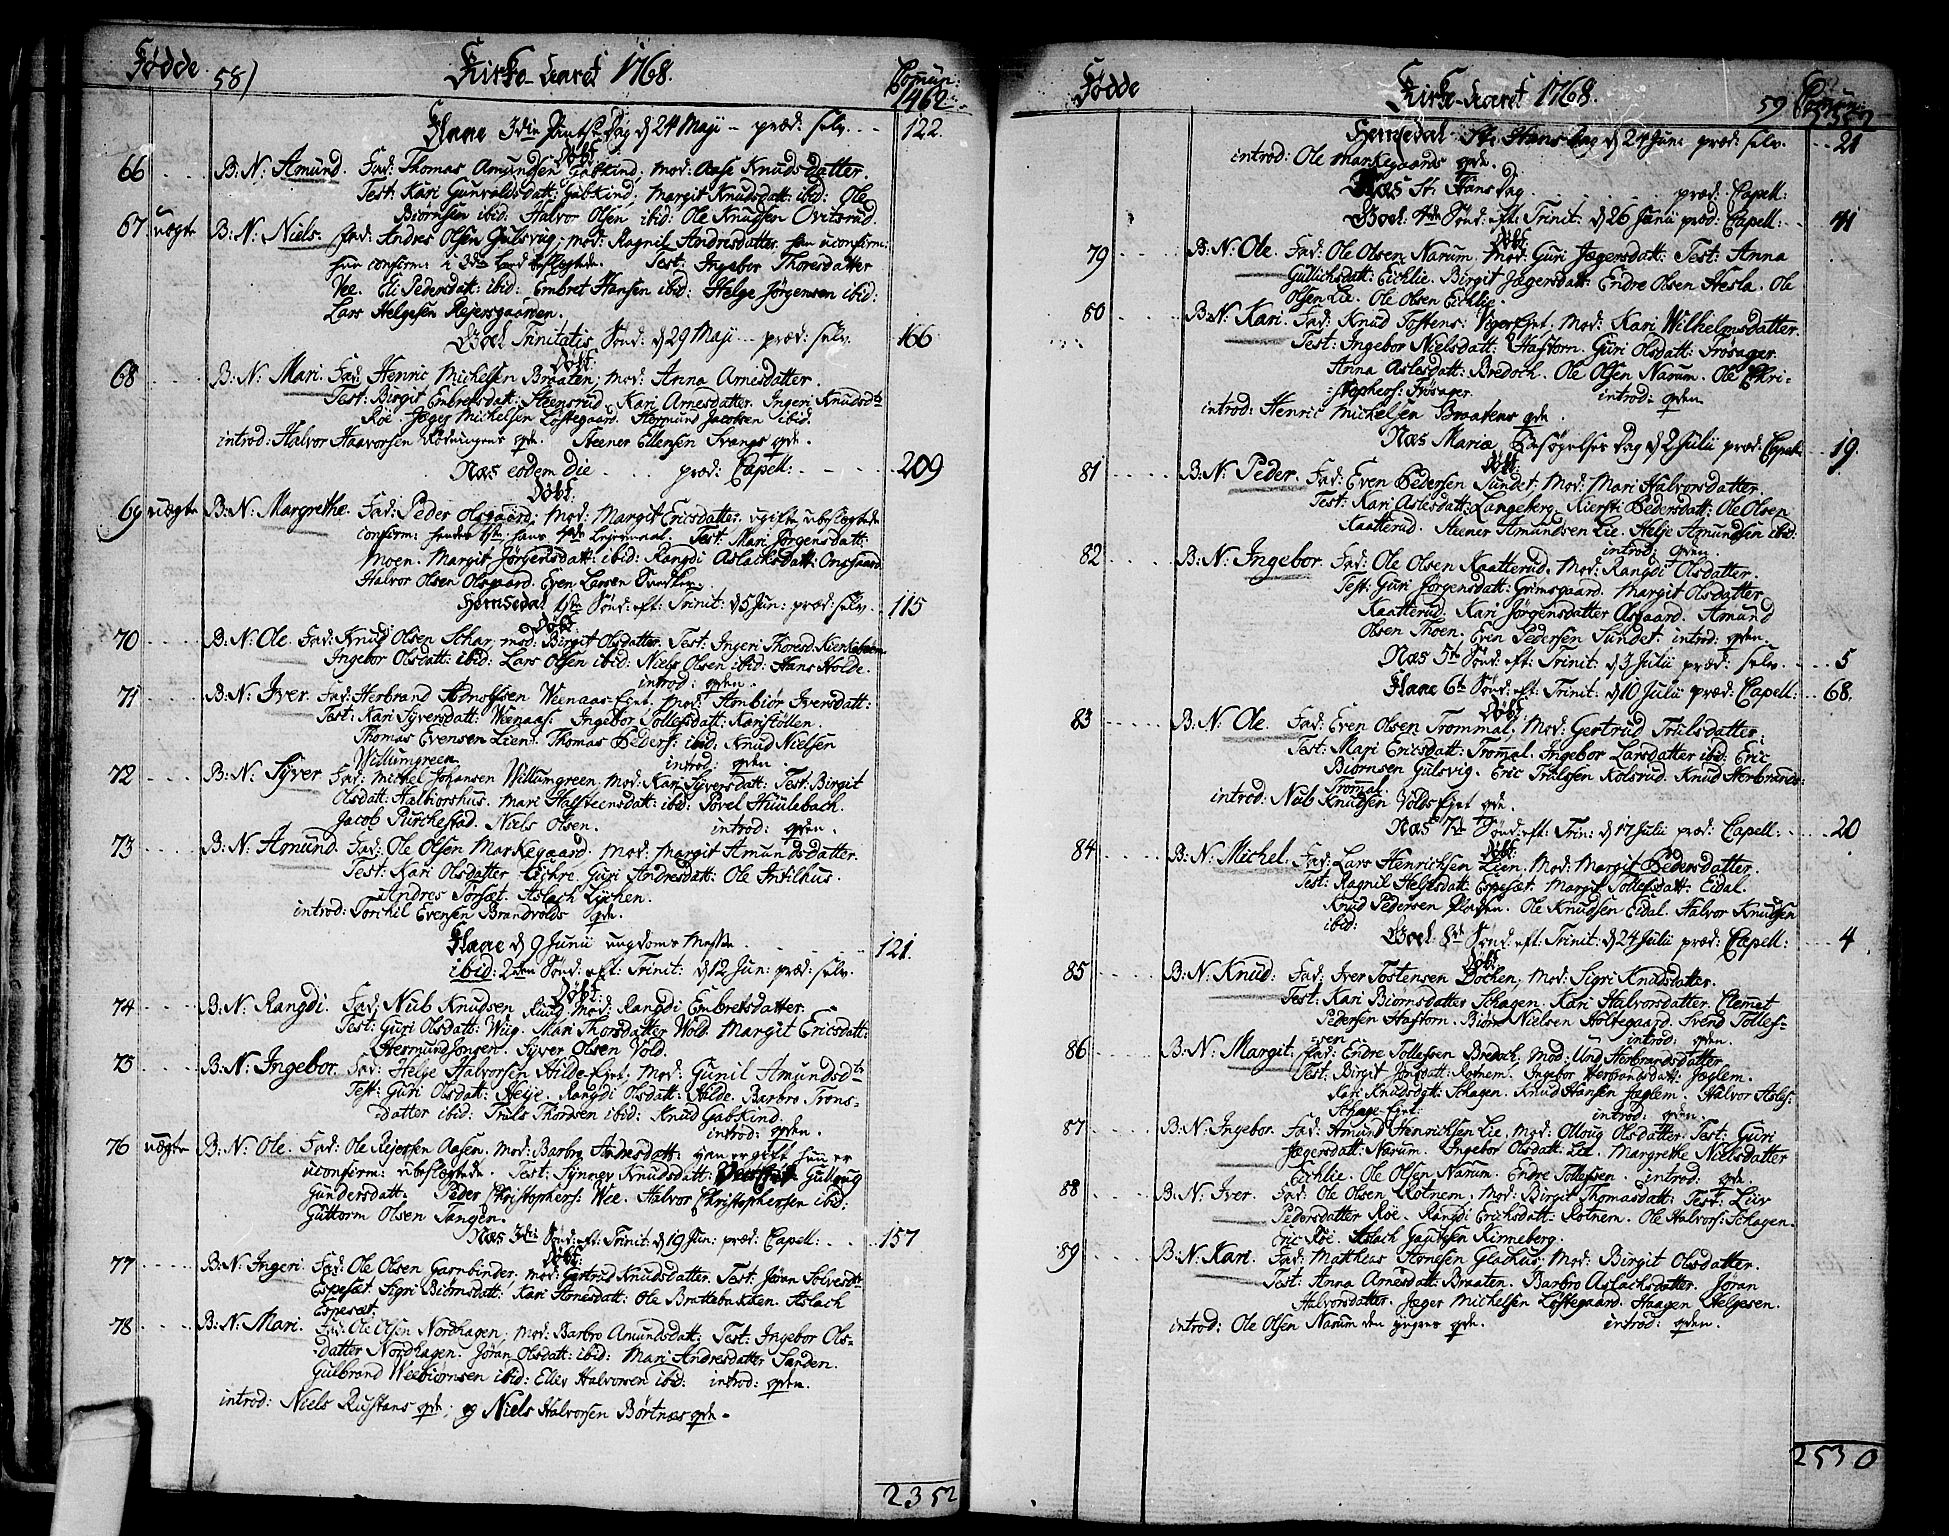 Fødde
58)
Kirke-Aaret 1768.
Comun:
1462.
Flaae 3die Pintse Dag d 24 Maji – præd: selv. 122.
Døbt:
66 B: N: Amund. Fad: Thomas Amundsen Gabkind, mod: Aase Knudsdatter.
Test: Kari Gunvaldsdatt: Gabkind, Margit Knudsdatt: ibid: Ole
Biørnsen ibid: Halvor Olsen ibid: Ole Knudsen Ovitsrud.
67 uægte B: N: Niels. Fad: Andres Olsen Gulsvig, mod: Ragnil Andresdatter. han uconfirm:
hun confirm: i 3die Leed beslægtede. Test: Ingebor Thoresdatter
Vee. Eli Pedersdatt: ibid: Embret Hansen ibid: Helge Jørgensen ibid:
Lars Helgesen Rejersgaarden.
Goel Trinitatis Sønd: d 29 Maji – præd: selv. 166
Døbt:
68 B: N: Mari. Fad: Henric Michelsen Braaten, mod: Anna Arnesdatter.
Test: Birgit Embretsdatt: Steensrud, Kari Arnesdatter. Ingeri Knudsdtr
Roe. Jæger Michelsen Løstegaard. Hermund Jacobsen ibid.
introd: Halvor Haavorsen Rødningens qde. Steener Ellensen Svangs qde.
Næs eodem die præd: Capell: 209
Døbt:
69 uægte B: N: Margrethe. Fad: Peder Olsgaard, mod: Margit Ericsdatter. ugifte ubeslægtede
confirm: hendes 1ste, hans Lejermaal. Test: Mari Jørgensdatt:
Moen. Margit Jørgensdatt: ibid: Rangdi Aslacksdatt: Omsgaard.
Halvor Olsen Olsgaard. Even Larsen
Hemsedal 1ste Sønd: eft: Trinit: d 5 Jun: præd: selv. 115
Døbt:
70 B: N: Ole. Fad: Knud Olsen Schar, mod: Birgit Olsdatter. Test: Ingeri Thoresd:
Ingebor Olsdatt: ibid: Lars Olsen ibid: Niels Olsen ibid: Hans Holde.
introd: qvden.
71 B: N: Iver. Fad: Herbrand Arnolfsen Weenaas-Ejet, mod: Hambiør Iversdatt:
Test: Kari Syversdatt: Weenaas: Ingebor Tollefsdatt: Karistollen.
Thomas Evensen Lien. Thomas Peders: ibid: Knud Nielsen
Willumgreen. introd: qvden.
72 B: N: Syver. Fad: Michel Johansen Willumgreen. mod: Kari Syversdatt: Test: Birgit
Olsdatt: Halbiorshus. Mari Halsteensdatt: ibid: Povel Huulebach.
Jacob Purchestad. Niels Olsen. introd: qvden.
73 B: N: Amund. Fad: Ole Olsen Markegaard. mod: Margit Amundsdatter.
Test: Kari Olsdatter Eichre. Guri Andresdatt: Ole Intilhus.
Andres Torsæt. Aslach Lychen.
introd: Torchil Evensen Brandvolds qde.
Flaae d 9 Junii ungdoms Messe. 121.
ibid: 2den Sønd: eft: Trinit: d 12 Jun: præd: selv.
Døbt:
74 B: N: Rangdi. Fad: Nub Knudsen Ruug, mod: Rangdi Embretsdatter.
Test: Guri Olsdatt: Wug. Mari Thorsdatter Vold. Margit Ericsdatt:
Hermundsonsen. Syver Olsen Vold.
75 B: N: Ingebor. Fad: Helge Halvorsen Hilde-Ejet, mod: Gunil Amundsdtr
Test: Guri Olsdatt: Heije. Rangdi Olsdatt: Hilde. Barbro Trons-
datter ibid: Truls Thordsen ibid: Knud Gabkind.
introd: qvden.
76 uægte B: N: Ole. Fad: Ole Rejersen Aasen. mod: Barbro Andersdatt: han er gift hun er
uconfirm: ubeslægtede. Test: Synnev Knudsdatt: Gulloug
Gundersdatt: Peder Christophers: Wee. Halvor Christophersen ibid:
Guttorm Olsen Tangen.
Næs 3die Sønd: eft: Trinit: d 19 Jun: præd: Capell: 157
Døbt:
77 B: N: Ingeri. Fad: Ole Olsen Garnbinder. mod: Gertrud Knudsdatter. Test: Jøran Solvesdtr
Espesæt. Sigri Biørnsdatt: Kari Arnesdatt: Ole Brattebakken. Aslach
Espesæt.
78 B: N: Mari. Fad: Ole Olsen Nordhagen, mod: Barbro Amundsdatt: Test: Ingebor Ols-
datter Nordhagen. Jøran Olsdatt: ibid: Mari Andresdatter Sanden.
Gulbrand Weebiørnsen ibid: Ellev Halvorsen ibid: introd: qvden.
introd: Niels Rustans qde, og Niels Halvorsen Børtnæs qde.
2352
Fødde
Kirke-Aaret 1768.
59
Comun:
2352
Hemsedal St: Hans Dag d 24 Juni præd: selv. 21
introd: Ole Markegaards qde.
Næs St: Hans Dag præd: Capell:
Goel 4de Sønd: eft: Trinit: d 26 Junii præd: Capell: 41
Døbt:
79 B: N: Ole. Fad: Ole Olsen Narum. Mod: Guri Jægersdatt: Test: Anna
Gullichsdatt: Eichlie. Birgit Jægersdatt: Endre Olsen Hesla. Ole
Olsen Lie. Ole Olsen Eichlie.
80 B: N: Kari. Fad: Knud Tostens: Viger Ejet, mod: Kari Wilhelmsdatter.
Test: Ingebor Nielsdatt: Haftorn. Guri Olsdatt: Trøsager.
Anna Aslesdatt: Bredoch. Ole Olsen Narum. Ole Chri-
stophers: Trøsager. introd: qvden.
introd: Henric Michelsen Braatens qde.
Næs Mariæ Besøgelses Dag d 2 Julii præd: Capel: 19.
Døbt:
81 B: N: Peder. Fad: Even Pedersen Sundet. Mod: Mari Halvorsdatter.
Test: Kari Aslesdatt: Langeberg. Kiersti Pedersdatt: Ole Olsen
Kaatterud. Steener Amundsen Lie. Helje Amundsen ibid:
introd: qvden.
82 B: N: Ingebor. Fad: Ole Olsen Kaatterud. Mod: Rangdi Olsdatter.
Test: Guri Jørgensdatt: Grimsgaard. Margit Olsdatter
Kaatterud. Kari Jørgensdatter Olsgaard. Amund
Olsen Thoen. Even Pedersen Sundet. introd: qvden.
Næs 5te Sønd: eft: Trinit: d 3 Julii præd: selv. 5
Flaae 6te Sønd: eft: Trinit: d 10 Julii præd: Capell: 68.
Døbt:
83 B: N: Ole. Fad: Even Olsen Trommal, Mod: Gertrud Trulsdatter.
Test: Mari Ericsdatt: Tromal. Ingebor Larsdatter ibid: Eric
Biørnsen Gulsvig. Eric Trulsen Kolsrud. Knud Herbrands:
Tromal.
introd: Nub Knudsen Volds Ejet qde.
Næs 7de Sønd: eft: Trin: d 17 Julii præd: Capell: 20
Døbt:
84 B: N: Michel. Fad: Lars Henrichsen Lien. Mod: Margit Pedersdatter.
Test: Ragnil Helgesdatt: Espesæt. Margit Tollefsdatt: Eidal.
Knud Pedersen Pladsen. Ole Knudsen Eidal. Halvor Knudsen
ibid:
Goel 8de Sønd: eft: Trinit: d 24 Julii præd: Capell: 4
Døbt:
85 B: N: Knud: Fad: Iver Tostensen Dochen, mod: Sigri Knudsdatter.
Test: Kari Biornsdatter Schagen. Kari Halvorsdatter. Clemet
Pedersen Haftorn. Biørn Nielsen Holtegaard. Svend Tollef-
sen. introd: qvden.
86 B: N: Margit. Fad: Endre Tollefsen Bredoch. Mod: Ung Herbrandsdatter.
Test: Birgit Jonsdatt: Rotnem. Ingebor Herbrandsdatt: Jæglem.
Kari Knudsdatt: Schagen. Knud Hansen Jæglem. Halvor Asles:
Schage-Ejet: introd: qvden.
87 B: N: Ingebor. Fad: Amund Henrichsen Lie. mod: Olloug Olsdatter. Test: Guri
Jægersdatt: Narum. Ingebor Olsdatt: Lie. Margrethe Nielsdatter
Eichlie. Ole Olsen Narum. Endre Tollefsen. introd: qde.
88 B: N: Iver. Fad: Ole Olsen Rotnem, mod: Birgit Thomasdatt: Test: Liv
Pedersdatter Roe. Rangdi Erichsdatt: Rotnem. Ole Halvors: Schagen.
Eric Roe. Aslach Gautesen Rinneberg.
89 B: N: Kari. Fad: Matthias Arnesen Gladhus, Mod: Birgit Olsdatter.
Test: Anna Arnesdatt: Braaten. Barbro Aslachsdatter. Jøran
Halvorsdatter. Jæger Michelsen Løstegaard. Haagen Helgesen.
introd: Ole Olsen Narum den yngres qde. introd: qvden.
2530